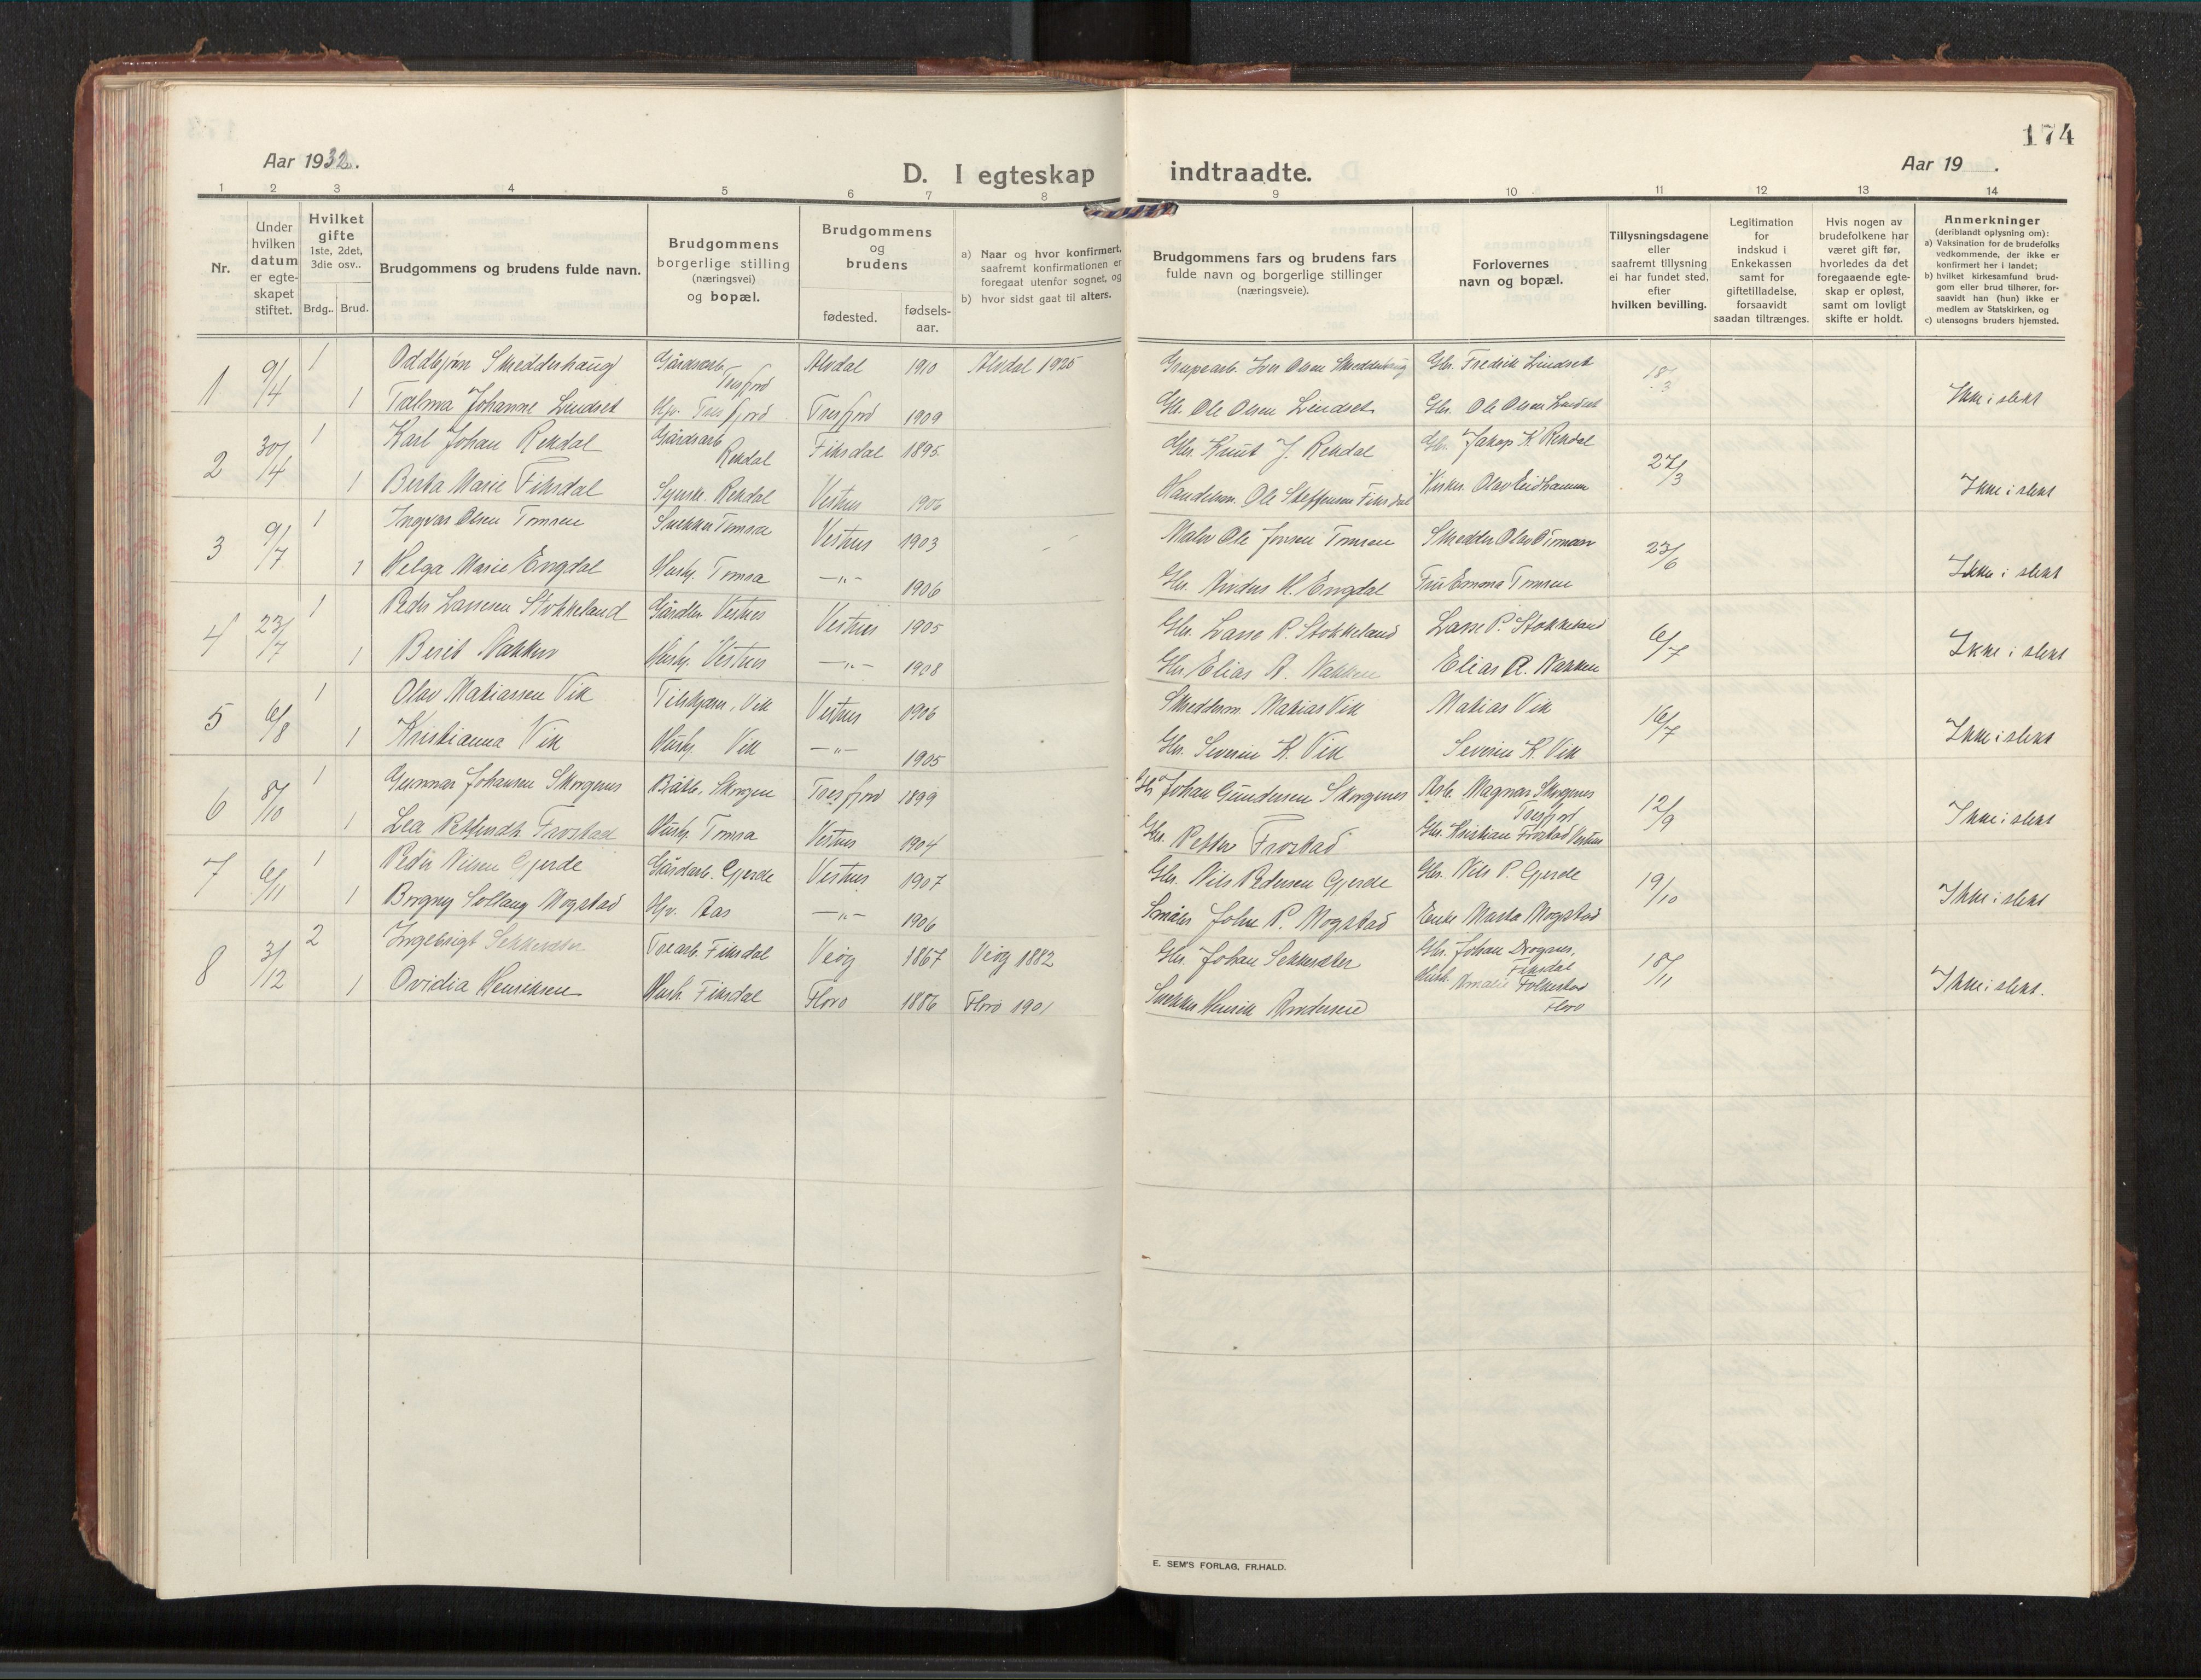 174
Aar 1932.
D. I egteskap indtraadte.
Aar 19 .
1 2 3 4 5 6 7 8 9 10 11 12 13 14
Nr.
Under hvilken datum er egteskapet stiftet.
Hvilket gifte 1ste, 2det, 3die osv..
Brdg.. Brud.
Brudgommens og brudens fulde navn.
Brudgommens borgerlige stilling (næringsvei) og bopæl.
Brudgommens og brudens
fødested.
fødsels-aar.
a) Naar og hvor konfirmert, saafremt konfirmationen er foregaat utenfor sognet, og
b) hvor sidst gaat til alters.
Brudgommens fars og brudens fars fulde navn og borgerlige stillinger (næringsveie).
Forlovernes navn og bopæl.
Tillysningsdagene eller saafremt tillysning ei har fundet sted, efter hvilken bevilling.
Legitimation for indskud i Enkekassen samt for giftetilladelse, forsaavidt saadan tiltrænges.
Hvis nogen av brudefolkene har været gift før, hvorledes da det foregaaende egteskap er opløst, samt om lovligt skifte er holdt.
Anmerkninger (deriblandt oplysning om):
a) Vaksination for de brudefolks vedkommende, der ikke er konfirmert her i landet;
b) hvilket kirkesamfund brudgom eller brud tilhører, forsaavidt han (hun) ikke er medlem av Statskirken, og
c) utensogns bruders hjemsted.
1 9/4 1 Oddbjørn Skredderhaug Gårdsarb. Tresfjord Alvdal 1910 Alvdal 1925 Grubearb. Iver Olsen Skredderhaug Gbr. Fredrik Lindset 18/3 Ikke i slekt
1 Talma Johanne Lindset Hpv. Tresfjord Tresfjord 1909 Gbr. Ole Olsen Lindset Gbr. Ole Olsen Lindset
2 30/4 1 Karl Johan Rekdal Gårdsarb. Rekdal Fiksdal 1895 Gbr. Knut J. Rekdal Gbr. Jakop K. Rekdal 27/3 Ikke i slekt
1 Berta Marie Fiksdal Syersk. Rekdal Vestnes 1906 Handelsm. Ole Steffensen Fiksdal Olav Eidhammer
3 9/7 1 Ingvar Olsen Tomren Snekker Tomra Vestnes 1903 Maler Ole Jonsen Tomren Skredder Olav O. Tomren 23/6 Ikke i slekt
1 Helga Marie Engdal Hush. Tomra —"— 1906 Gbr. Anders H. Engdal Fru Emma Tomren
4 23/7 1 Peder Lassesen Stokkeland Gårdbr. Vestnes Vestnes 1905 Gbr. Lasse P. Stokkeland Lasse P. Stokkeland 6/7 Ikke i slekt
1 Berit Nakken Hush. Vestnes —"— 1908 Gbr. Elias A. Nakken Elias A. Nakken
5 6/8 1 Olav Matiassen Vik Vik Vestnes 1906 Skredderm. Matias Vik Matias Vik 16/7 Ikke i slekt
1 Kristianna Vik Hush. Vik —"— 1905 Gbr. Severin K. Vik Severin K. Vik
6 8/10 1 Gunnar Johansen Skorgenes Båtb. Skorgen Tresfjord 1899 Gbr. Johan Gundersen Skorgenes Arb. Magnar Skorgenes Tresfjord 12/9 Ikke i slekt
1 Lea Pettersdtr. Frostad Hush. Tomra Vestnes 1904 Gbr. Petter Frostad Gbr. Kristian Frostad Vestnes
7 6/11 1 Peder Nilsen Gjerde Gårdarb. Gjerde Vestnes 1907 Gbr. Nils Pedersen Gjerde Gbr. Nils P. Gjerde 19/10 Ikke i slekt
1 Borgny Sollaug Mogstad Hpv. Aas —"— 1906 Småbr. John P. Mogstad Enke Marta Mogstad
8 3/12 2 Ingebrigt Sekkesæter Trearb. Fiksdal Veøy 1867 Veøy 1882 Gbr. Johan Sekkesæter Gbr. Johan Drognes, Fiksdal 18/11 Ikke i slekt.
1 Ovidia Henriksen Hush. Fiksdal Florø 1886 Florø 1901 Snekker Henrik Andersen Hush. Amalie Folkestad Florø
E. SEM'S FORLAG, FR.HALD.